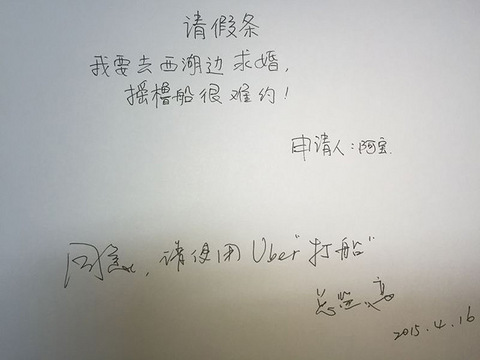 请假条
我要去西湖边求婚，
摇橹船很难约！
申请人：阿宝
同意，请使用Uber“打船”
2015.4.16